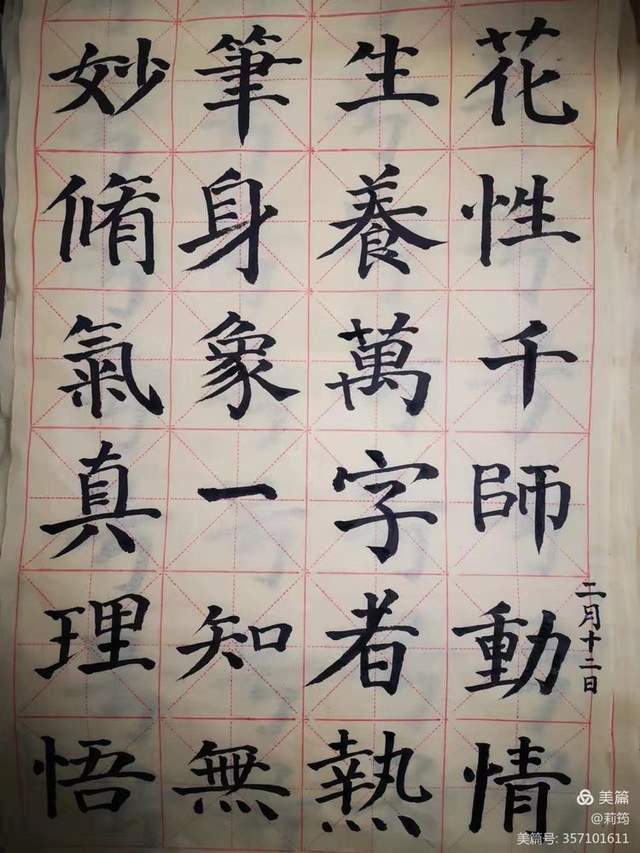 妙筆生花
脩身養性
氣象萬千
真一字師
理知者動
悟無熱情
二月十二日
美篇
@莉筠
美篇号: 357101611